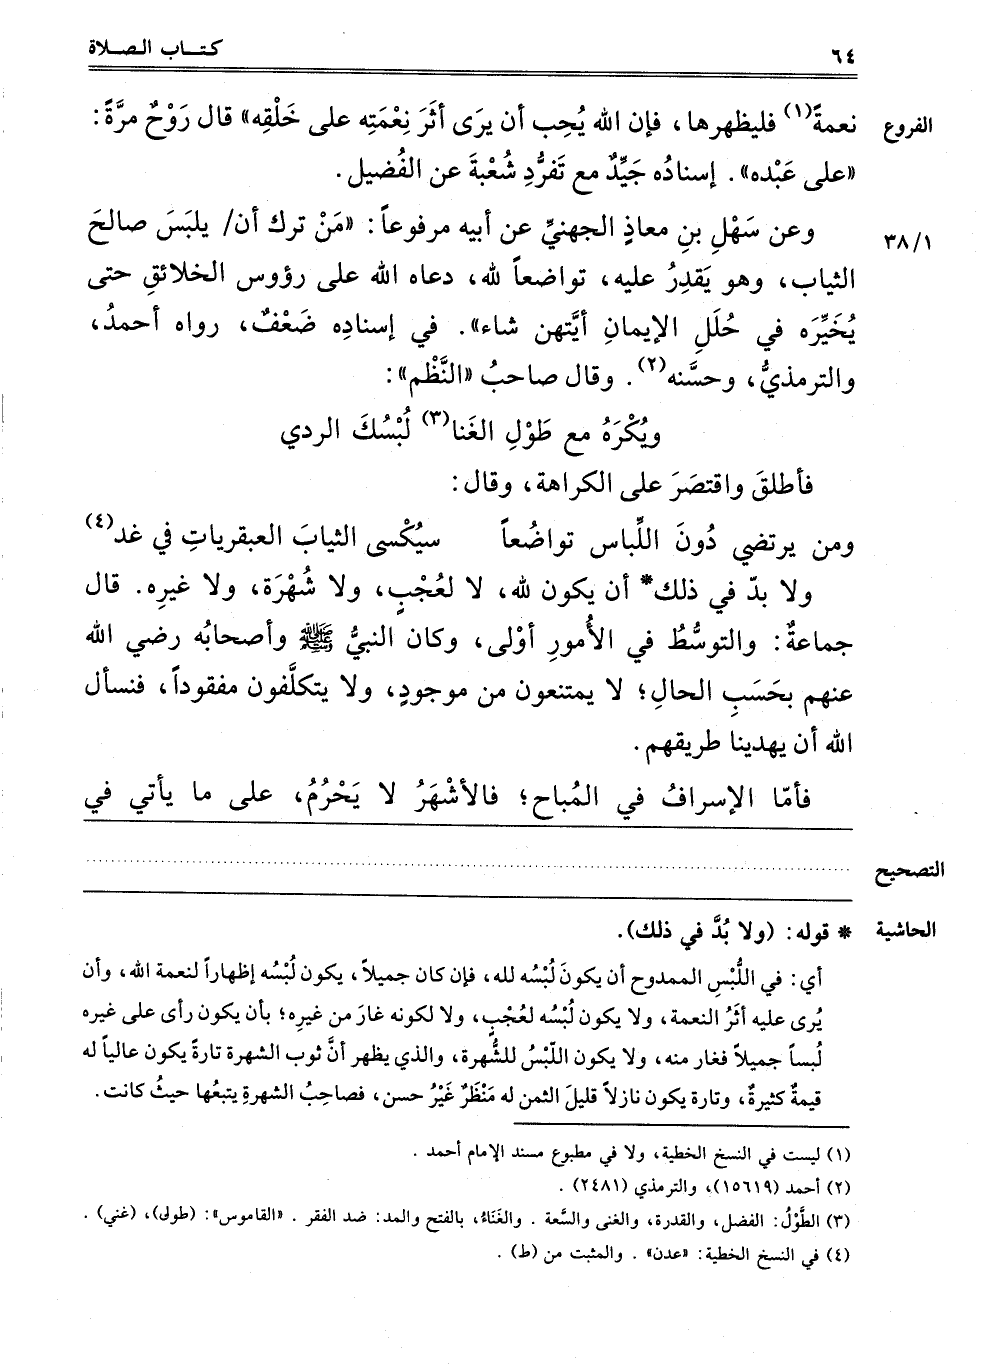 ٦٤ كتاب الصلاة
الفروع نعمةً(١) فليظهرها، فإن الله يُحِب أن يرَى أثَرَ نِعْمَتِه على خَلْقِه» قال رَوْحٌ مرَّةً:
«على عَبْده». إسنادُه جَيِّدٌ مع تَفرُّدِ شُعْبةَ عن الفُضيل.
٣٨/١ وعن سَهْلِ بنِ معاذٍ الجهنيِّ عن أبيه مرفوعاً: «مَنْ ترك أن/ يلبَسَ صالحَ
الثياب، وهو يَقدِرُ عليه، تواضعاً لله، دعاه الله على رؤوس الخلائقِ حتى
يُخَيِّرَه في حُلَلِ الإيمانِ أيَّتهن شاء». في إسنادِه ضَعْفٌ، رواه أحمدُ،
والترمذيُّ، وحسَّنه(٢). وقال صاحبُ «النَّظْم»:
ويُكْرَهُ مع طَوْلِ الغَنا(٣) لُبْسُكَ الردي
فأطلقَ واقتصَرَ على الكراهة، وقال:
ومن يرتضي دُونَ اللِّباس تواضُعاً سيُكْسى الثيابَ العبقرياتِ في غد(٤)
ولا بدّ في ذلك* أن يكون لله، لا لعُجْبٍ، ولا شُهْرَة، ولا غيرِه. قال
جماعةٌ: والتوسُّطُ في الأُمورِ أوْلى، وكان النبيُّ ﷺ وأصحابُه رضي الله
عنهم بحَسَبِ الحالِ؛ لا يمتنعون من موجودٍ، ولا يتكلَّفون مفقوداً، فنسأل
الله أن يهدينا طريقهم.
فأمّا الإسرافُ في المُباح؛ فالأشْهَرُ لا يَحْرُمُ، على ما يأتي في
التصحيح ........................................
الحاشية * قوله: (ولا بُدَّ في ذلك).
أي: في اللُّبْسِ الممدوح أن يكونَ لُبْسُه لله، فإن كان جميلاً، يكون لُبْسُه إظهاراً لنعمة الله، وأن
يُرى عليه أثَرُ النعمة، ولا يكون لُبْسُه لعُجْبٍ، ولا لكونه غارَ من غيرِه؛ بأن يكون رأى على غيره
لُبساً جميلاً فغار منه، ولا يكون اللّبْسُ للشُّهرة، والذي يظهر أنَّ ثوب الشهرة تارةً يكون عالياً له
قيمةٌ كثيرةٌ، وتارة يكون نازلاً قليلَ الثمن له مَنْظَرٌ غَيْرُ حسن، فصاحِبُ الشهرةِ يتبعُها حيثُ كانت.
(١) ليست في النسخ الخطية، ولا في مطبوع مسند الإمام أحمد.
(٢) أحمد (١٥٦١٩)، والترمذي (٢٤٨١).
(٣) الطَّوْلُ: الفضل، والقدرة، والغنى والسَّعة. والغَنَاءُ، بالفتح والمد: ضد الفقر. «القاموس»: (طول)، (غني).
(٤) في النسخ الخطية: «عدن». والمثبت من (ط).